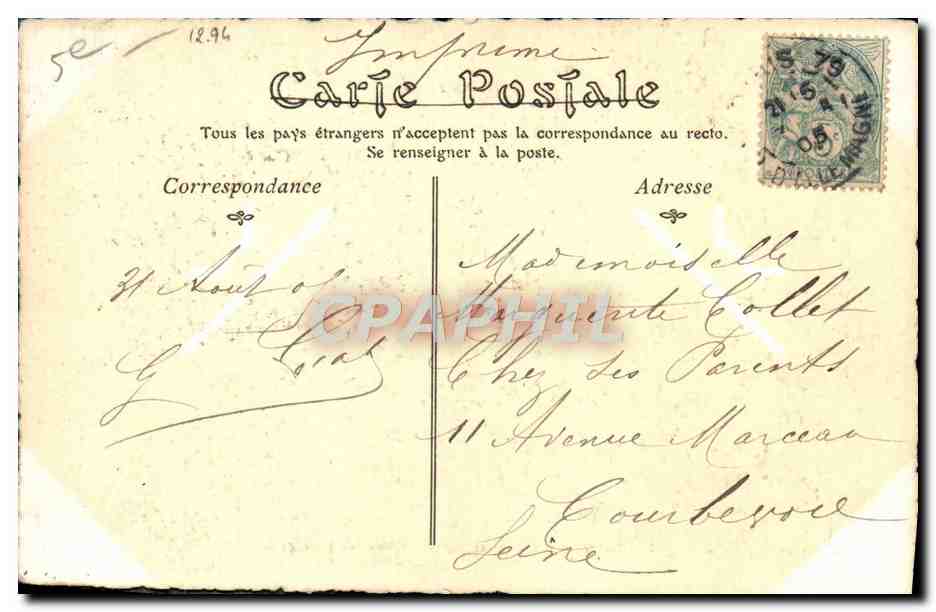 5e
12.94
Imprimé
Carte Postale
Tous les pays étrangers n'acceptent pas la correspondance au recto.
Se renseigner à la poste.
Correspondance
Adresse
31 Août 05
G
Mademoiselle
Marguerite Collet
Chez ses Parents
11 Avenue Marceau
Courbevoie
Seine
05
D'ALLEMAGNE
CPAPHIL